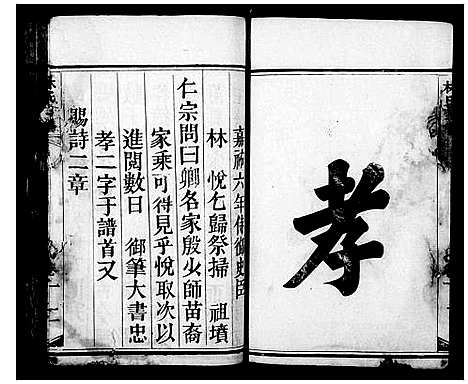 孝
嘉祐六年侍御史臣
林 悅乞歸祭掃 祖墳
仁宗問曰卿名家殷少師苗裔
家乘可得見乎悅取次以
進閱數日 御筆大書忠
孝二字于譜首又
賜詩二章